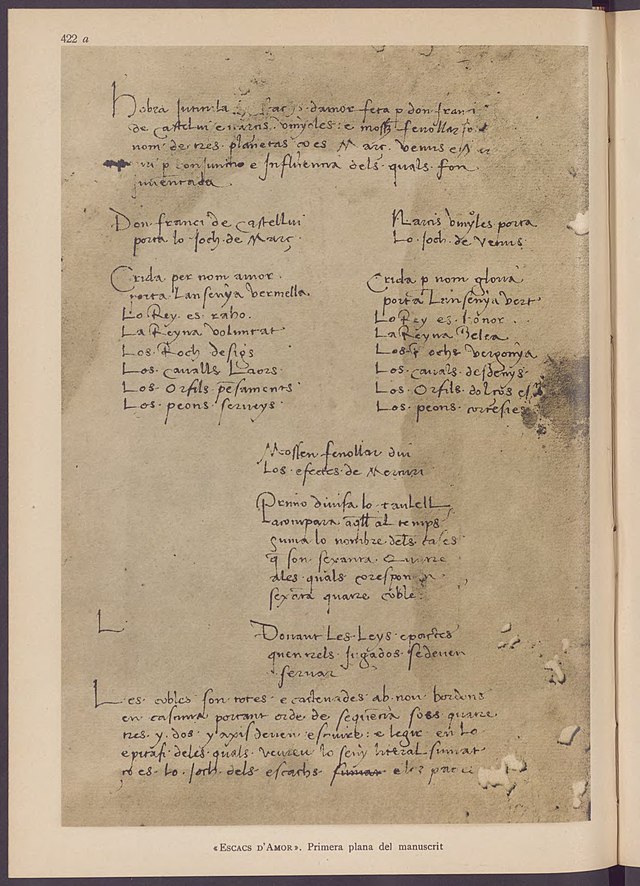 422 a
hobra intitulada scachs damor feta p don franci
de castelui e narcis vinyoles e mossen fenollar so
nom de tres planetas ço es Març Venus e Mer
curi p conjunccio e influencia dels quals fon
inventada
Don franci de Castellui
porta lo joch de Març
Narcis vinyoles porta
Lo joch de Venus
Crida per nom amor
porta lansenya vermella
Lo Rey es raho
La Reyna voluntat
Los Roch desigs
Los cavalls Laors
Los Orfils pesaments
Los peons serveys
Crida p nom gloria
porta Lansenya vert
Lo Rey es honor
La Reyna Belea
Los Rochs vergonya
Los cavals desdenys
Los Orfils dolços
Los peons cortesies
Mossen fenollar diu
Los efectes de Mercuri
Primo divisa lo taulell
acompara aqll al temps
suma lo nombre dels cases
q son sexanta quatre
ales quals corespon
sexanta quatre cobles
L
Donant Les Leys e pactes
quentrels jugados se deven
servar
Les cobles son totes encadenades ab nou bordons
en cascuna portant orde de sequencia sos quatre
tres y dos y axis deven escriure e legir en lo
epitafi deles quals veureu lo seny literal sumat
ço es lo joch dels escachs els pac
«Escacs d'Amor». Primera plana del manuscrit